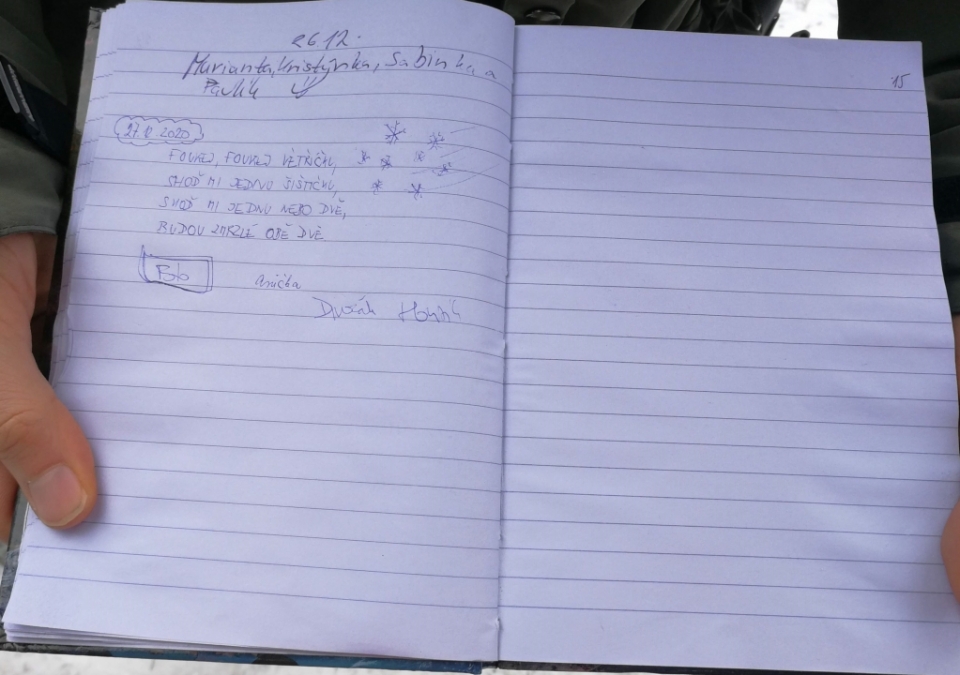 26.12.
Marianka, Kristýnka, Sabinka a
Pavlík
27.12.2020
FOUKEJ, FOUKEJ VĚTŘÍČKU,
SHOĎ MI JEDNU ŠIŠTIČKU,
SHOĎ MI JEDNU NEBO DVĚ,
BUDOU ZMRZLÉ OBĚ DVĚ
Bb
Anička
Dvořák
15